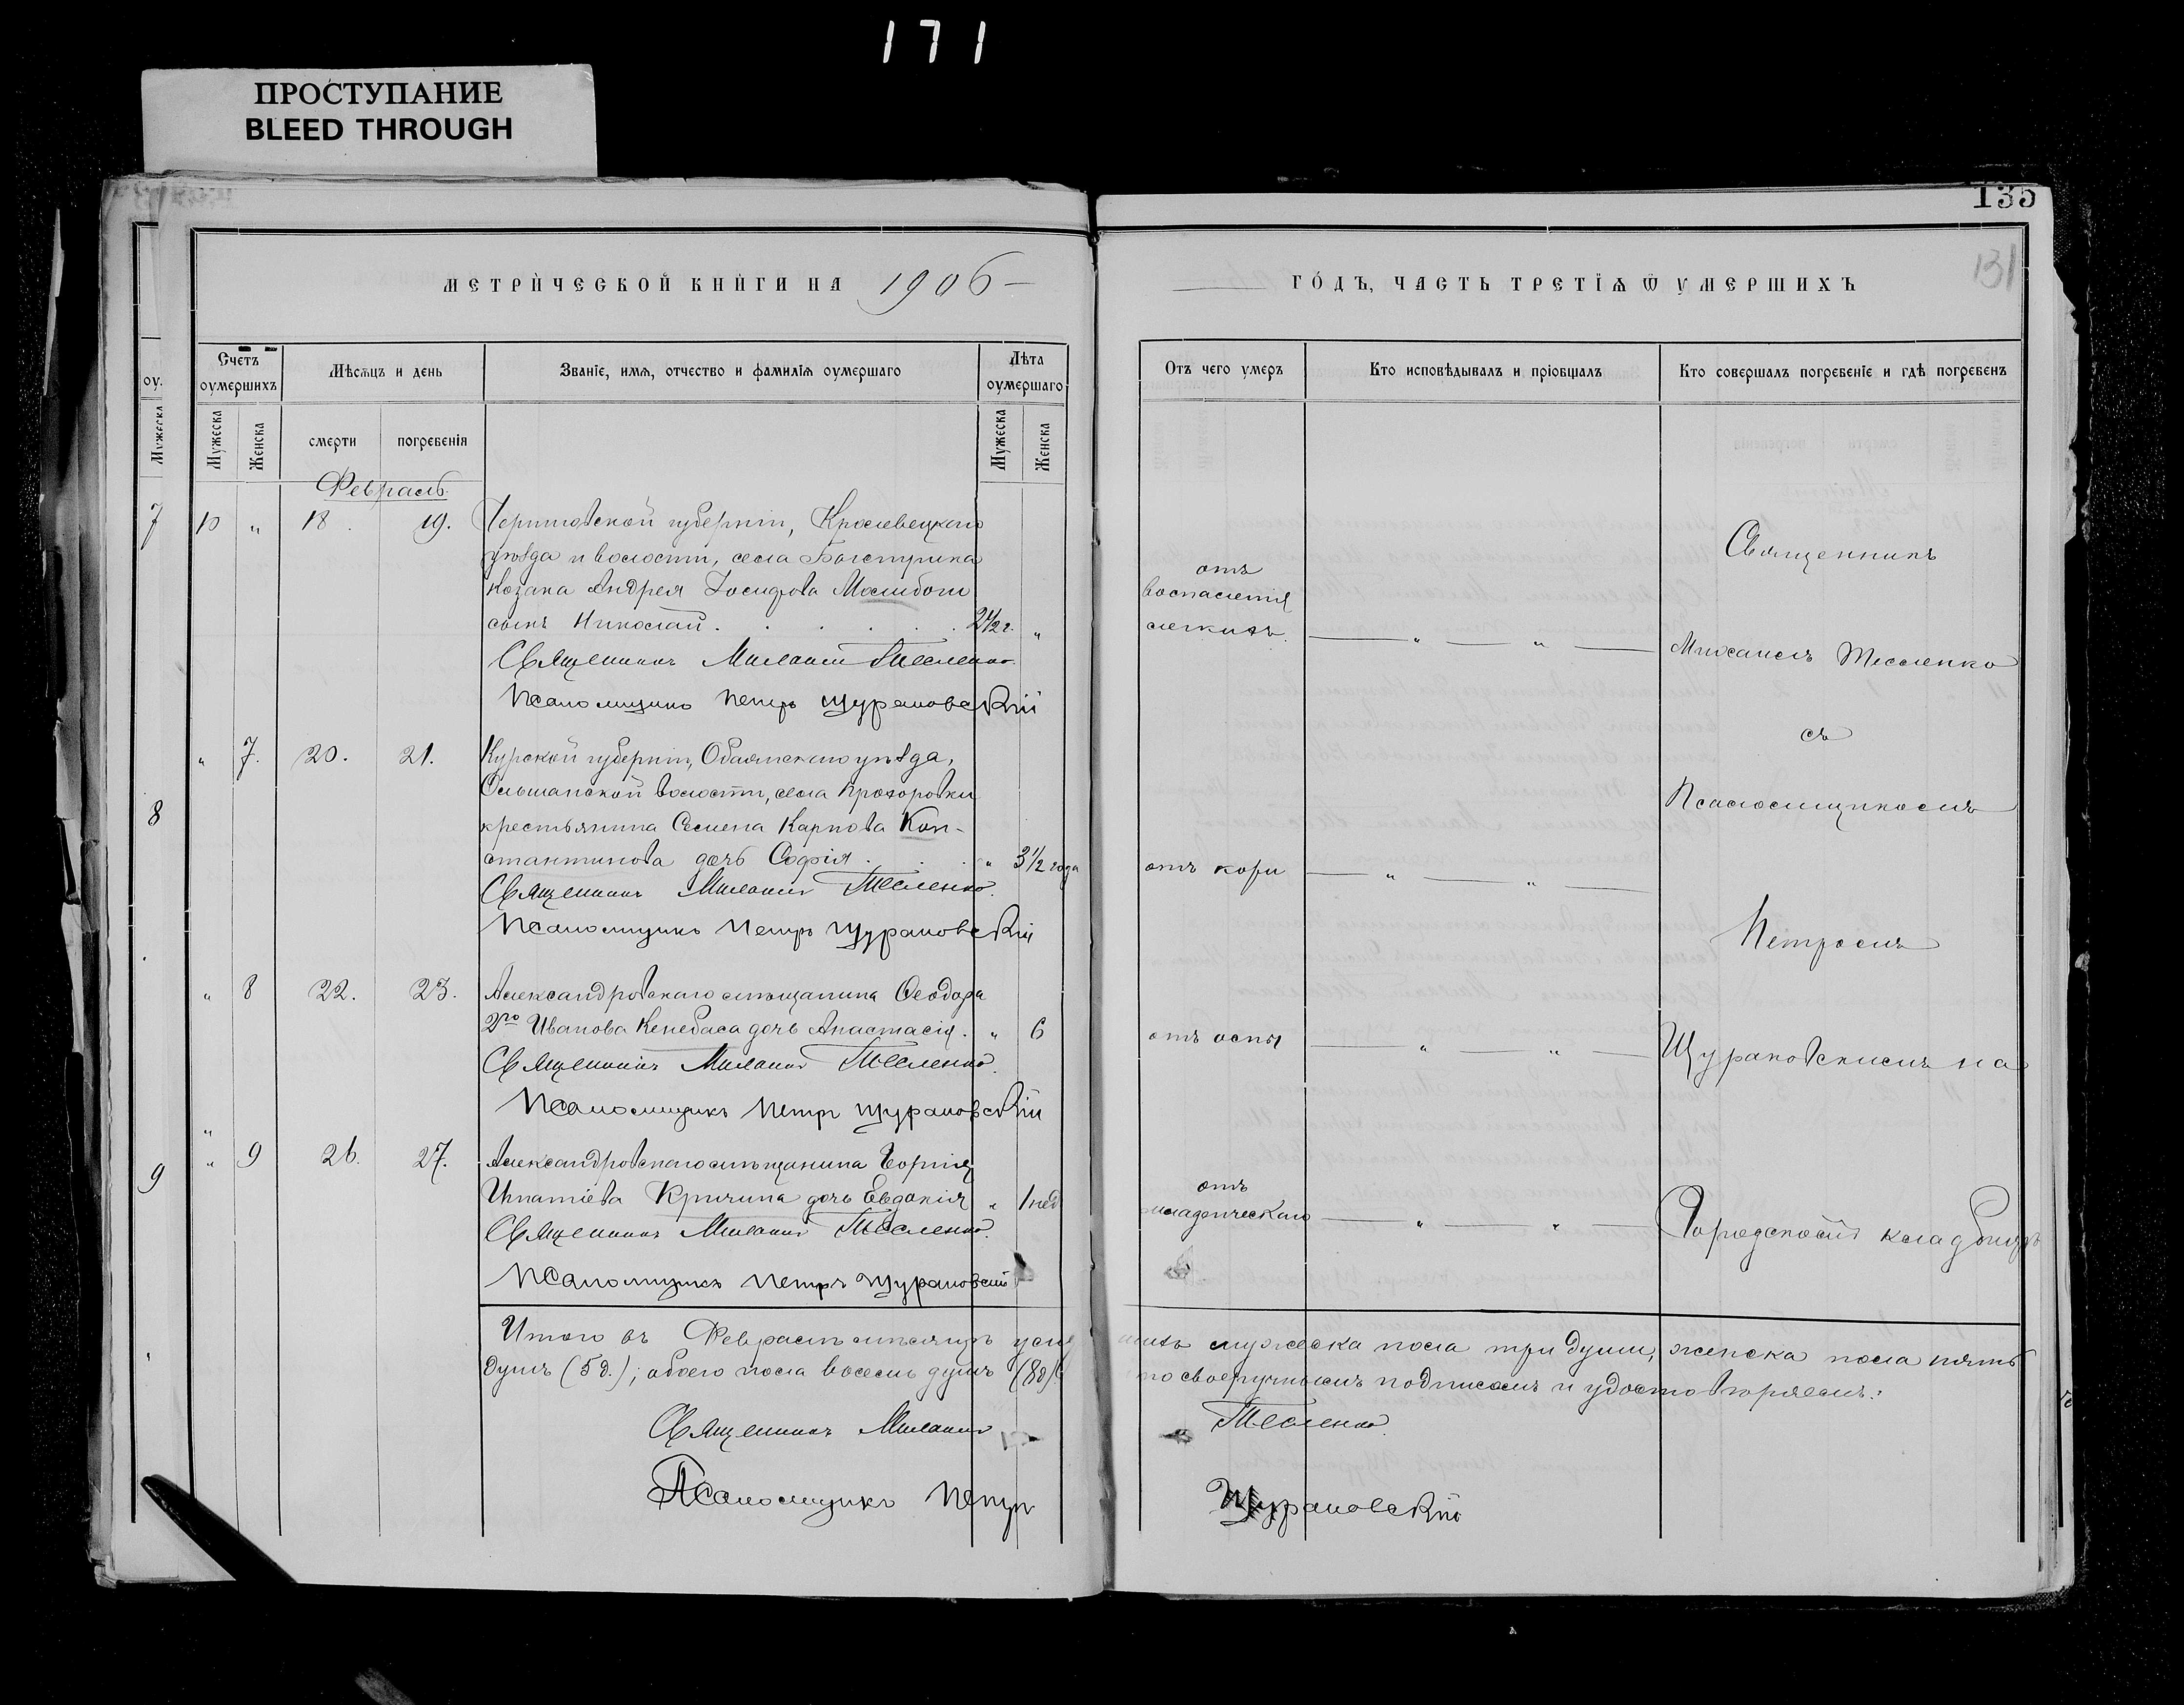 171
ПРОСТУПАНИЕ
BLEED THROUGH
135
131
МЕТРИЧЕСКОЙ КНИГИ НА 1906 ГОДЪ, ЧАСТЬ ТРЕТІѦ Ѿ УМЕРШИХЪ
оу.
Счетъ оумершихъ
Мѣсѧцъ и день
Званіе, имѧ, отчество и фамиліѧ оумершаго
Лѣта оумершаго
Отъ чего умеръ
Кто исповѣдывалъ и пріобщалъ
Кто совершалъ погребеніе и гдѣ погребенъ
Мужеска
Мужеска
Женска
смерти
погребенія
Мужеска
Женска
Февраль
7
10 " 18. 19. Черниговской губерніи, Кролевецкаго
уѣзда и волости, села
козака Андрея Іосифова
сынъ Николай. 2 1/2 г. "
отъ
воспаленія
легкихъ.
Священникъ Михаилъ Тесленко
Псаломщикъ Петръ Щурановскій
" 7. 20. 21. Курской губерніи, Обоянскаго уѣзда,
Ольшанской волости, села Прохоровки
8
крестьянина Семена Карпова Кон-
стантинова дочь Софія. " 3 1/2 года
отъ кори
Священникъ Михаилъ Тесленко.
Псаломщикъ Петръ Щурановскій
" 8 22. 23. Александровскаго мѣщанина Ѳеодора
2го Иванова Кенебаса дочь Анастасія. " 6
отъ оспы
Священникъ Михаилъ Тесленко.
Псаломщикъ Петръ Щурановскій
"
9
" 9 26. 27. Александровскаго мѣщанина
Игнатіева Кричина дочь Евдокія " 1 нед
отъ
младенческаго
Священникъ Михаилъ Тесленко.
Псаломщикъ Петръ Щурановскій
Священникъ
Михаилъ Тесленко
съ
Псаломщикомъ
Петромъ
Щурановскимъ на
Городскомъ кладбищѣ
Итого въ Февралѣ мѣсяцѣ мужеска пола три души, женска пола пять
душъ (5 д.); обоего пола восемь душъ (8 д) своеручнымъ подписомъ и удостовѣряемъ:
Священникъ Михаилъ Тесленко.
Псаломщикъ Петръ Щурановскій